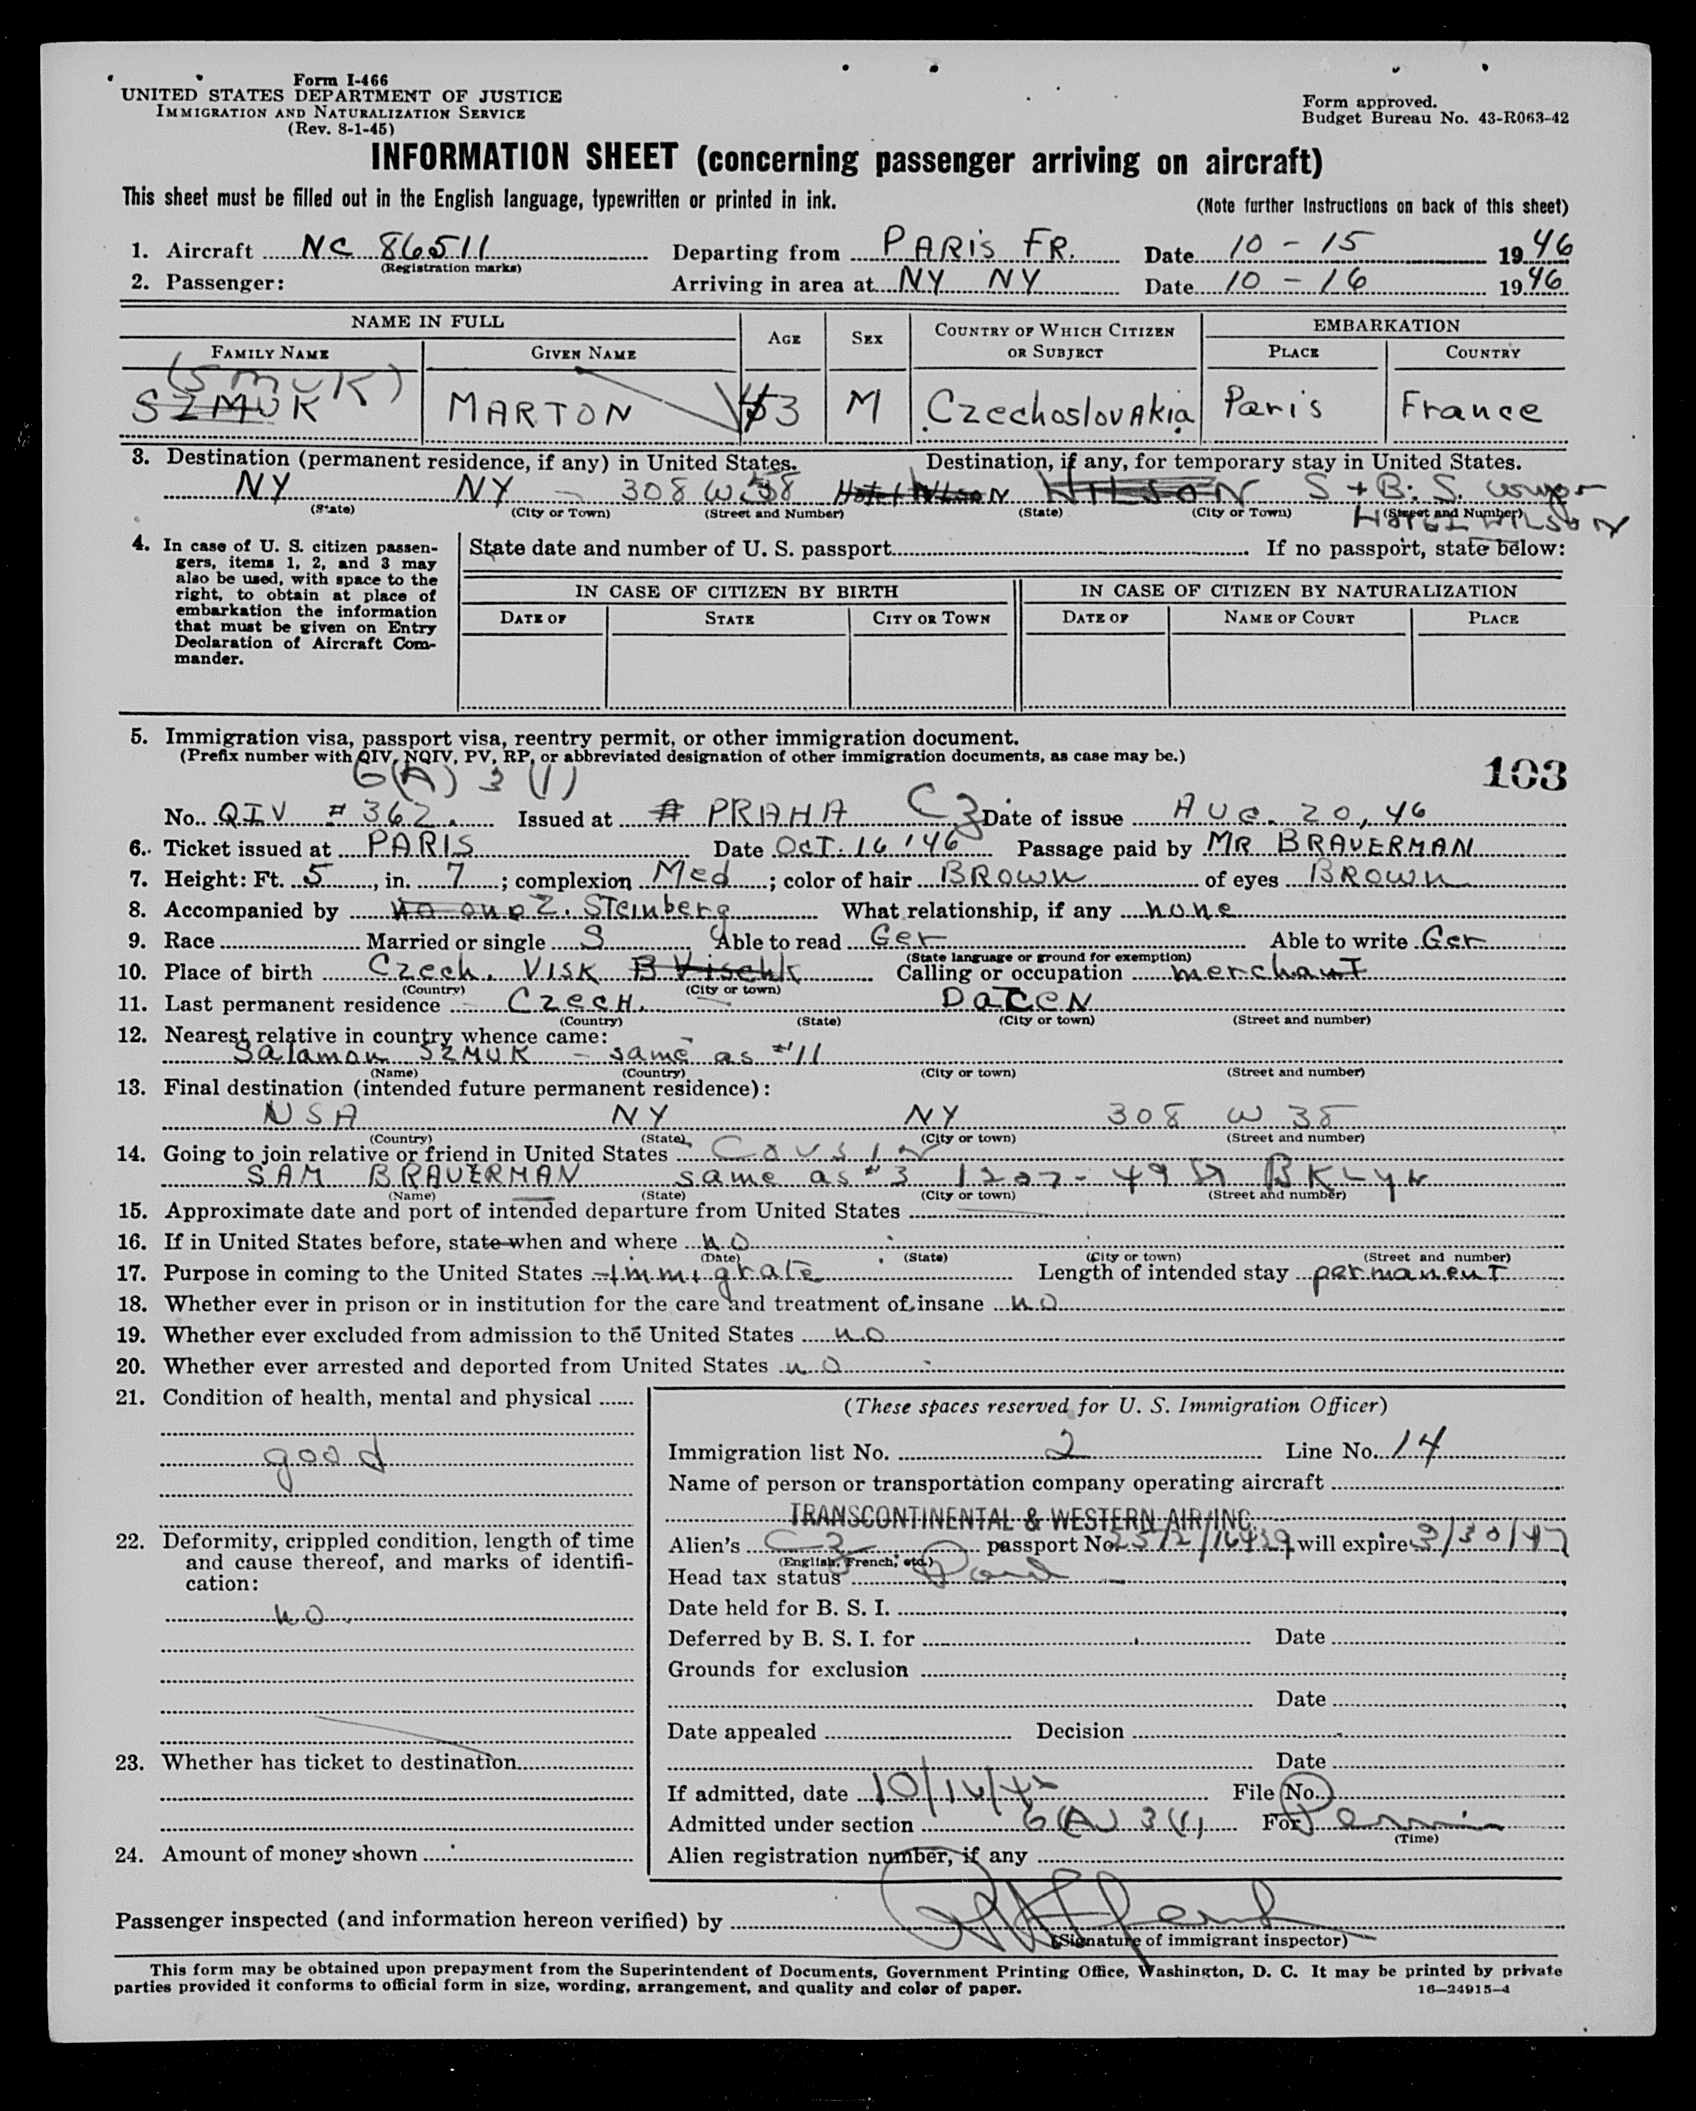 Form I-466
UNITED STATES DEPARTMENT OF JUSTICE
IMMIGRATION AND NATURALIZATION SERVICE
(Rev. 8-1-45)
Form approved.
Budget Bureau No. 43-R063-42
INFORMATION SHEET (concerning passenger arriving on aircraft)
This sheet must be filled out in the English language, typewritten or printed in ink.
(Note further instructions on back of this sheet)
1. Aircraft NC 86511 Departing from PARIS FR. Date 10 - 15 1946
(Registration marks)
2. Passenger: Arriving in area at NY NY Date 10 - 16 1946
NAME IN FULL AGE SEX COUNTRY OF WHICH CITIZEN OR SUBJECT EMBARKATION
FAMILY NAME GIVEN NAME PLACE COUNTRY
(SMUK)
SZMUK MARTON 3 M Czechoslovakia Paris France
3. Destination (permanent residence, if any) in United States. Destination, if any, for temporary stay in United States.
NY NY - 308 W 38 Hotel Wilson WILSON S + B. S.
(State) (City or Town) (Street and Number) (State) (City or Town) (Street and Number)
HOTEL WILSON
4. In case of U. S. citizen passengers, items 1, 2, and 3 may also be used, with space to the right, to obtain at place of embarkation the information that must be given on Entry Declaration of Aircraft Commander.
State date and number of U. S. passport If no passport, state below:
IN CASE OF CITIZEN BY BIRTH IN CASE OF CITIZEN BY NATURALIZATION
DATE OF STATE CITY OR TOWN DATE OF NAME OF COURT PLACE
5. Immigration visa, passport visa, reentry permit, or other immigration document.
(Prefix number with QIV, NQIV, PV, RP, or abbreviated designation of other immigration documents, as case may be.)
103
6(A) 3 (1)
No. QIV # 362. Issued at PRAHA CZ Date of issue AUG. 20, 46
6. Ticket issued at PARIS Date OCT. 16 '46 Passage paid by MR BRAUERMAN
7. Height: Ft. 5, in. 7; complexion Med; color of hair BROWN of eyes BROWN
8. Accompanied by no one Z. Steinberg What relationship, if any none
9. Race Married or single S Able to read Ger Able to write Ger
(State language or ground for exemption)
10. Place of birth Czech. VISK B Vischk Calling or occupation merchant
(Country) (City or town)
11. Last permanent residence CZECH.
(Country) (State) (City or town) (Street and number)
12. Nearest relative in country whence came:
Salamon SZMUK - same as #11
(Name) (Country) (City or town) (Street and number)
13. Final destination (intended future permanent residence):
USA NY NY 308 W 38
(Country) (State) (City or town) (Street and number)
14. Going to join relative or friend in United States Cousin
SAM BRAUERMAN same as #3 1207 - 49 St BKLyn
(Name) (State) (City or town) (Street and number)
15. Approximate date and port of intended departure from United States
16. If in United States before, state when and where no
(Date) (State) (City or town) (Street and number)
17. Purpose in coming to the United States Immigrate Length of intended stay permanent
18. Whether ever in prison or in institution for the care and treatment of insane no
19. Whether ever excluded from admission to the United States no
20. Whether ever arrested and deported from United States no
21. Condition of health, mental and physical
good
22. Deformity, crippled condition, length of time and cause thereof, and marks of identification:
no
23. Whether has ticket to destination
24. Amount of money shown
(These spaces reserved for U. S. Immigration Officer)
Immigration list No. 2 Line No. 14
Name of person or transportation company operating aircraft
TRANSCONTINENTAL & WESTERN AIR, INC.
Alien's CZ passport No. 2572/16439 will expire 3/30/47
(English, French, etc.)
Head tax status Paid
Date held for B. S. I.
Deferred by B. S. I. for Date
Grounds for exclusion
Date
Date appealed Decision
Date
If admitted, date 10/16/46 File No.
Admitted under section 6(A) 3(1) For Perm
(Time)
Alien registration number, if any
Passenger inspected (and information hereon verified) by
(Signature of immigrant inspector)
This form may be obtained upon prepayment from the Superintendent of Documents, Government Printing Office, Washington, D. C. It may be printed by private
parties provided it conforms to official form in size, wording, arrangement, and quality and color of paper.
16—24915-4